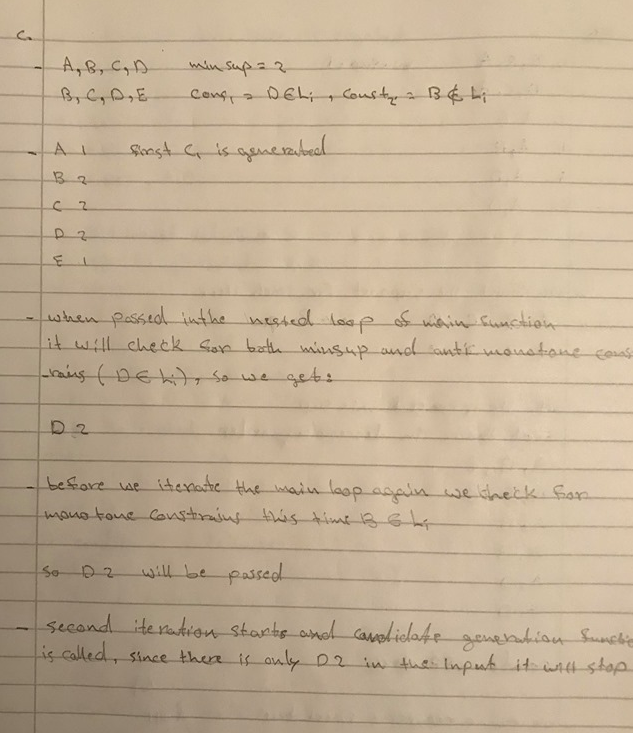 C.
- A, B, C, D minsup = 2
B, C, D, E cons₁ = D ∈ Li, const₂ = B ∉ Li
- A 1 first C₁ is generated
B 2
C 2
D 2
E 1
- when passed in the nested loop of main function
it will check for both minsup and anti monotone cons
-rains ( D ∈ Li ), so we get:
D 2
- before we iterate the main loop again we check for
monotone constrains this time B ∈ Li
so D 2 will be passed
- second iteration starts and candidate generation functio
is called, since there is only D2 in the input it will stop